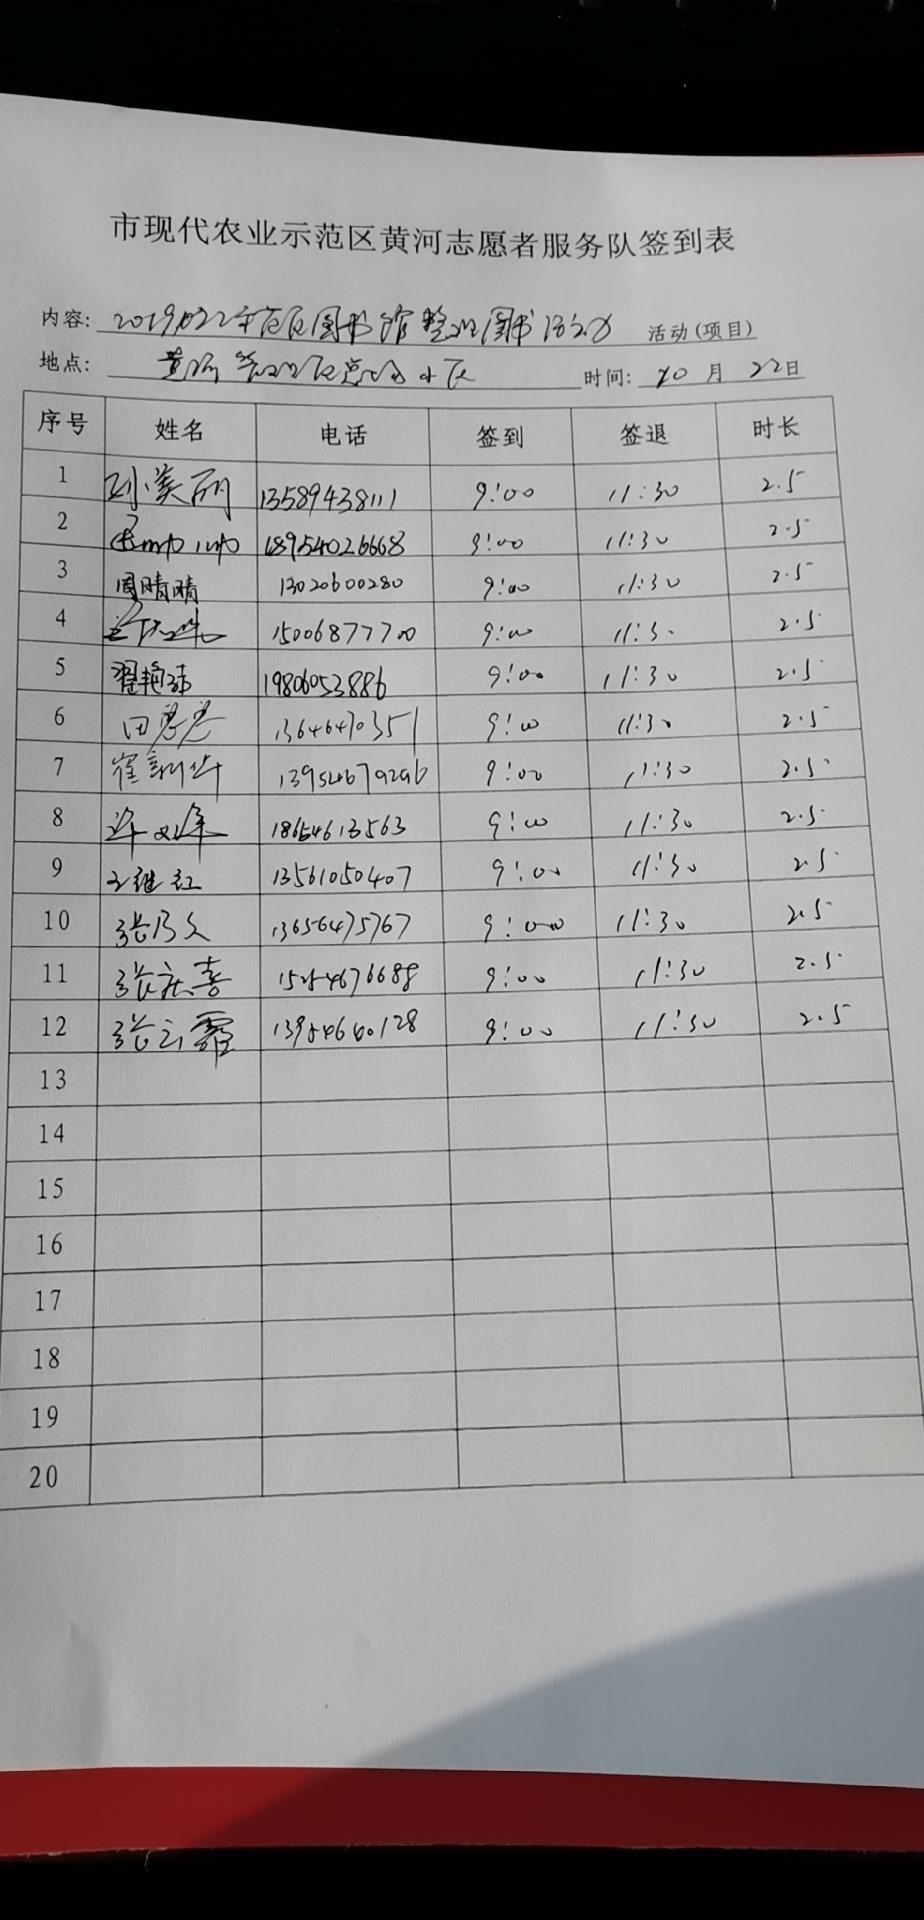 市现代农业示范区黄河志愿者服务队签到表
内容: 2019.1022 图书馆整理图书活动 活动(项目)
地点: 黄河 小区 时间: 10 月 22 日
序号 姓名 电话 签到 签退 时长
1 孙美丽 13589438111 9:00 11:30 2.5
2 18954026668 9:00 11:30 2.5
3 周晴晴 13020600280 9:00 11:30 2.5
4 15006877700 9:00 11:30 2.5
5 翟艳 19806053886 9:00 11:30 2.5
6 田 13646470351 9:00 11:30 2.5
7 崔新华 13954679296 9:00 11:30 2.5
8 许 18654613563 9:00 11:30 2.5
9 王继红 13561050407 9:00 11:30 2.5
10 张乃文 13656475767 9:00 11:30 2.5
11 张庆喜 15254676688 9:00 11:30 2.5
12 张云霞 13954660128 9:00 11:30 2.5
13
14
15
16
17
18
19
20